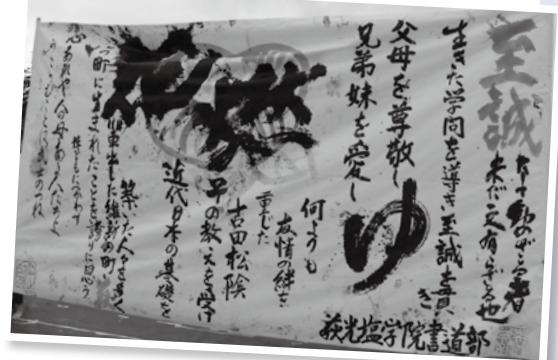 至誠
にして動かざる者
未だ之れ有らざる也
生きた学問を導き至誠を貫き
父母を尊敬し
兄弟妹を愛し
ゆ
何よりも
友情の絆を
重じた
吉田松陰
その教えを学び
近代日本の基礎を
築いた人々を多く
輩出した維新の町
この町に生まれたことを誇りに思う
萩光塩学院書道部